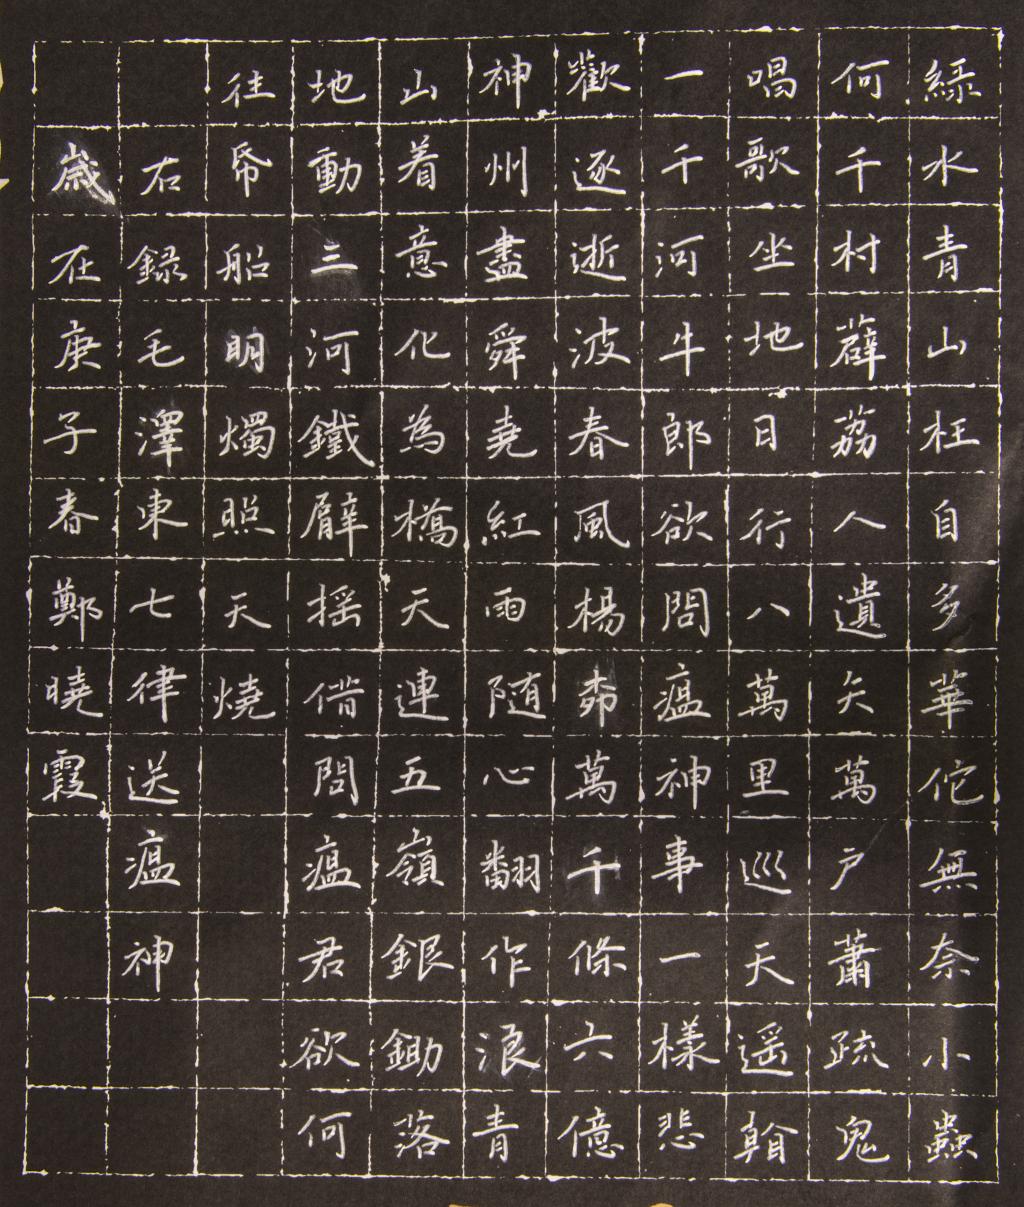 綠水青山枉自多華佗無奈小蟲
何千村薜荔人遺矢萬戶蕭疏鬼
唱歌坐地日行八萬里巡天遥
一千河牛郎欲問瘟神事一樣悲
歡逐逝波春風楊桺萬千條六億
神州盡舜堯紅雨随心翻作浪青
山着意化為橋天連五嶺銀鋤落
地動三河鐵臂摇借問瘟君欲何
往帋船明燭照天燒
右録毛澤東七律送瘟神
歲在庚子春鄭曉霞